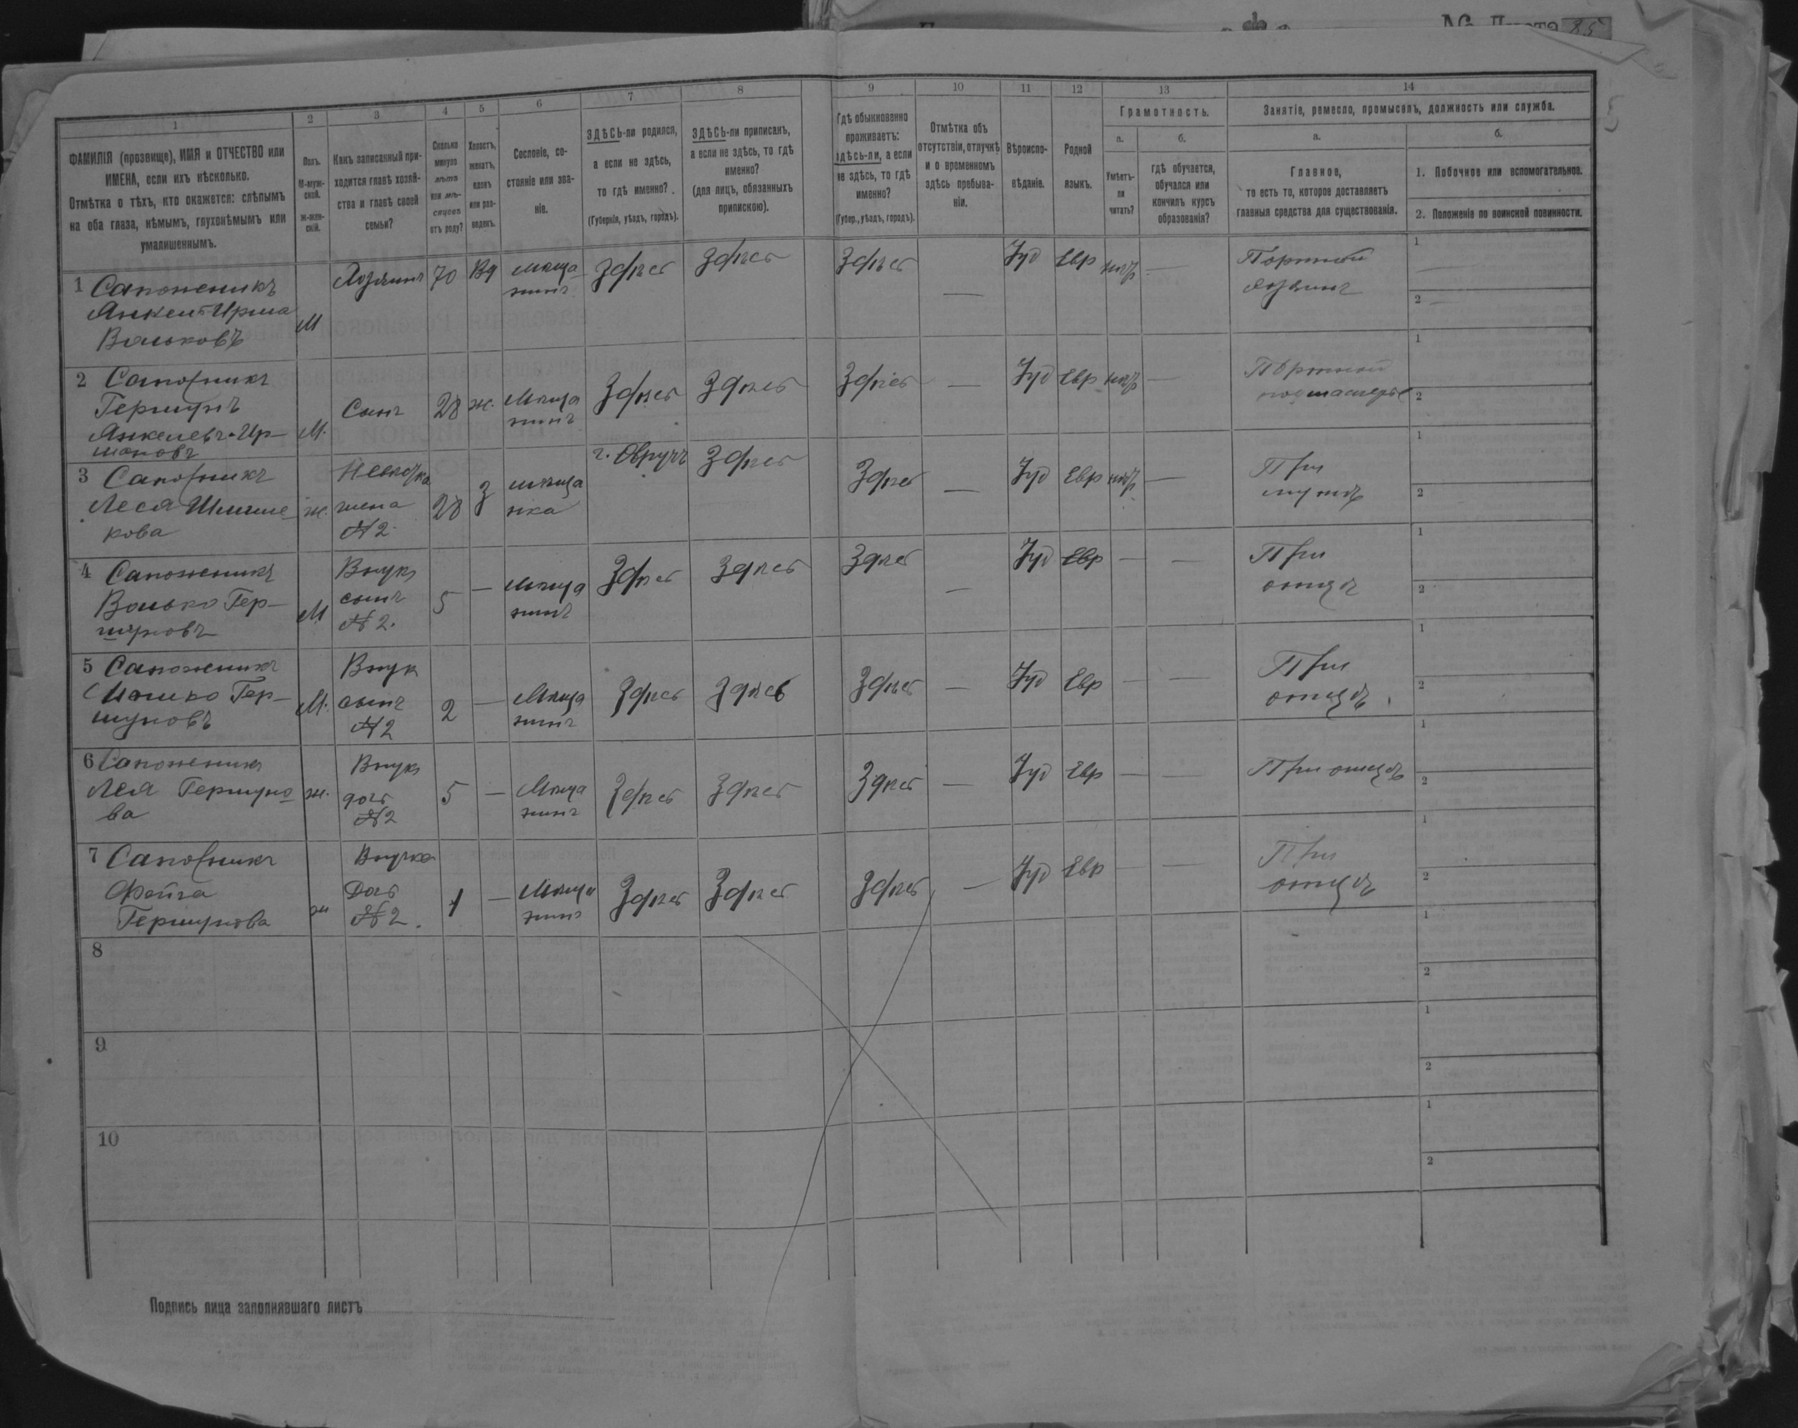 № Листа 85
1 2 3 4 5 6 7 8 9 10 11 12 13 14
ФАМИЛІЯ (прозвище), ИМЯ и ОТЧЕСТВО или
ИМЕНА, если ихъ нѣсколько.
Отмѣтка о тѣхъ, кто окажется: слѣпымъ
на оба глаза, нѣмымъ, глухонѣмымъ или
умалишеннымъ.
Полъ.
М-муж-
ской.
Ж-жен-
скій.
Какъ записанный при-
ходится главѣ хозяй-
ства и главѣ своей
семьи?
Сколько
минуло
лѣтъ
или мѣ-
сяцевъ
отъ роду?
Холостъ,
женатъ,
вдовъ
или раз-
веденъ.
Сословіе, со-
стояніе или зва-
ніе.
ЗДѢСЬ-ли родился,
а если не здѣсь,
то гдѣ именно?
(Губернія, уѣздъ, городъ).
ЗДѢСЬ-ли приписанъ,
а если не здѣсь, то гдѣ
именно?
(для лицъ, обязанныхъ
припискою).
Гдѣ обыкновенно
проживаетъ:
здѣсь-ли, а если
не здѣсь, то гдѣ
именно?
(Губер., уѣздъ, городъ).
Отмѣтка объ
отсутствіи, отлучкѣ
и о временномъ
здѣсь пребыва-
ніи.
Вѣроиспо-
вѣданіе.
Родной
языкъ.
Грамотность.
а.
Умѣетъ-
ли
читать?
б.
гдѣ обучается,
обучался или
кончилъ курсъ
образованія?
Занятіе, ремесло, промыселъ, должность или служба.
а.
Главное,
то есть то, которое доставляетъ
главныя средства для существованія.
б.
1. Побочное или вспомогательное.
2. Положеніе по воинской повинности.
1 Сапоженикъ
Янкель-Ирма
Вольковъ
М Хозяинъ 70 Вд мѣща
нинъ
Здѣсь Здѣсь Здѣсь — Іуд Евр — Портной
хозяинъ
1
2
2 Сапожникъ
Гершунъ
Янкелевъ-Ир-
мановъ
М. Сынъ 28 ж. Мѣща
нинъ
Здѣсь Здѣсь Здѣсь — Іуд Евр — Портной
подмастерье
1
2
3 Сапожникъ
Леся
кова
ж. Невѣстка
жена
№2.
28 З мѣща
нка
г. Овручъ Здѣсь Здѣсь — Іуд Евр — При
мужѣ
1
2
4 Сапоженикъ
Волько Гер-
шуновъ
М Внукъ
сынъ
№2.
5 — Мѣща
нинъ
Здѣсь Здѣсь Здѣсь — Іуд Евр — — При
отцѣ
1
2
5 Сапоженикъ
Мошко Гер-
шуновъ
М. Внукъ
сынъ
№2
2 — Мѣща
нинъ
Здѣсь Здѣсь Здѣсь — Іуд Евр — — При
отцѣ.
1
2
6 Сапоженикъ
Лея Гершуно
ва
ж. Внука
дочь
№2
5 — Мѣща
нинъ
Здѣсь Здѣсь Здѣсь — Іуд Евр — — При отцѣ
1
2
7 Сапожникъ
Фейга
Гершунова
ж Внучка
Дочь
№2.
1 — Мѣща
нинъ
Здѣсь Здѣсь Здѣсь — Іуд Евр — — При
отцѣ
1
2
8
1
2
9
1
2
10
1
2
Подпись лица заполнявшаго листъ